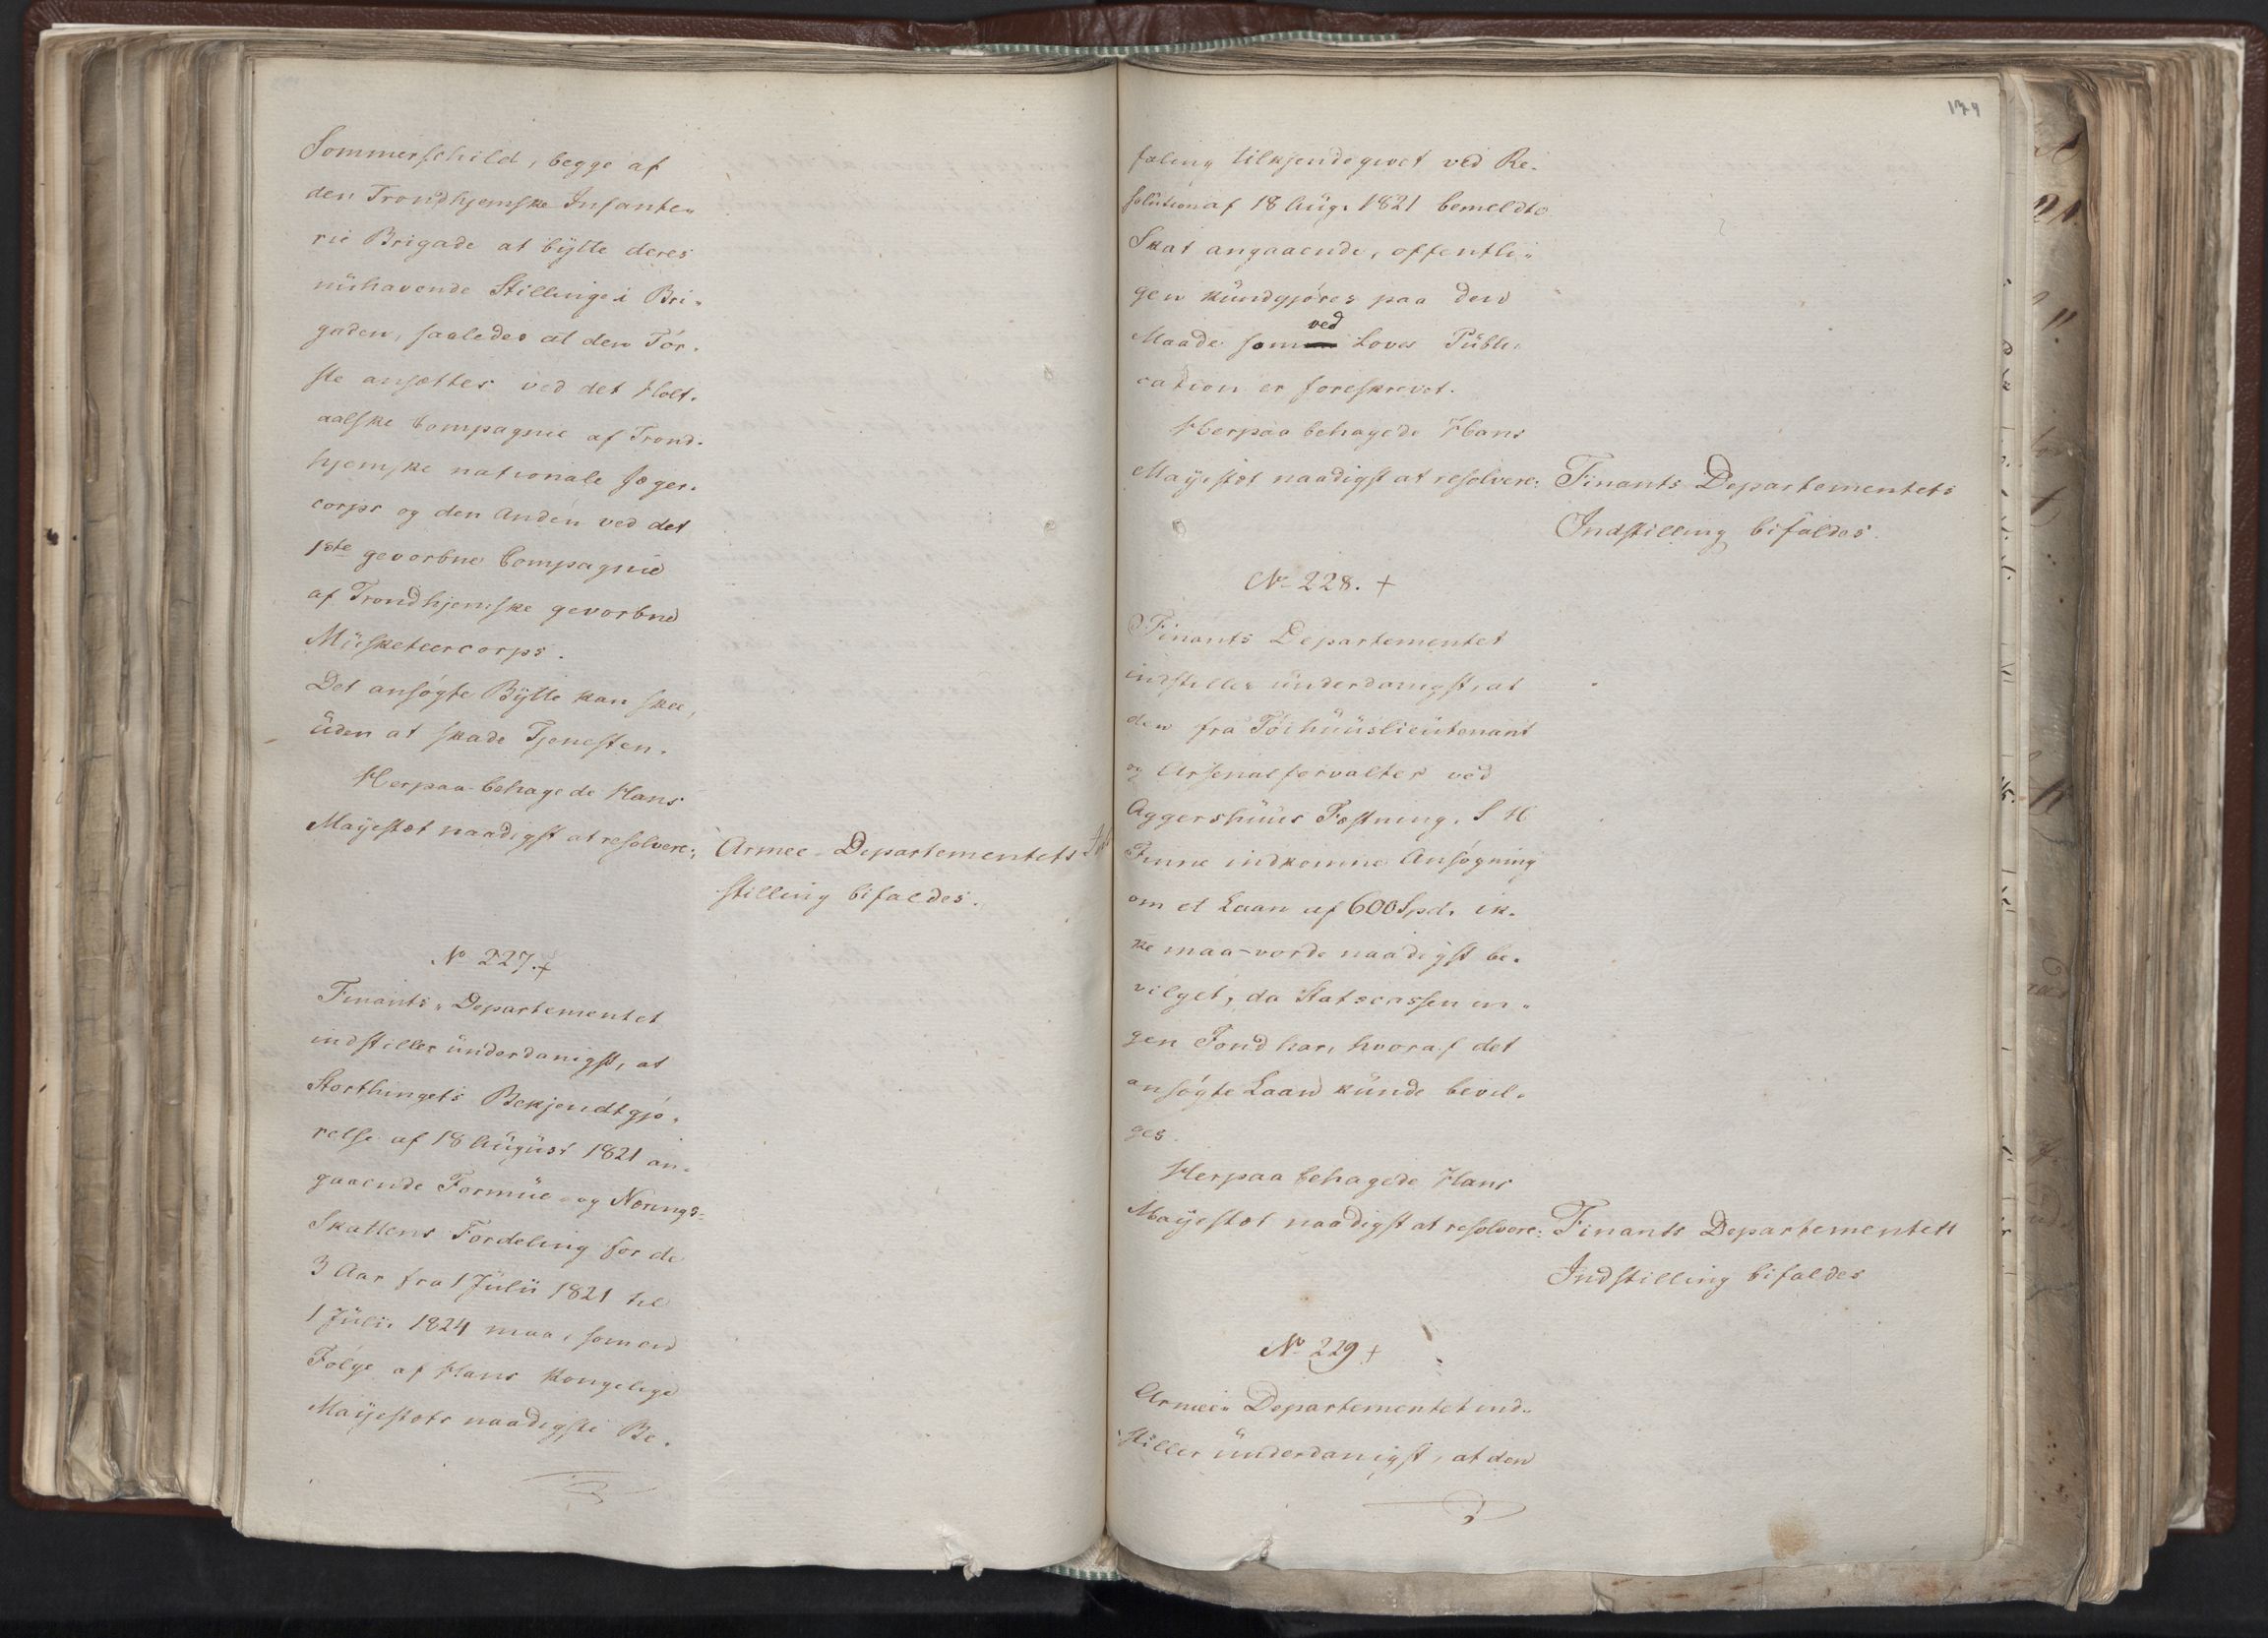 Sommerschild, begge af
den Trondhjemske Infante-
rie Brigade at bÿtte deres
nuhavende Stillinge i Bri-
gaden, saaledes at den För-
ste ansættes ved det Holt-
aalske Compagnie af Trond-
hjemske nationale Jæger-
corps og den Anden ved det
1ste gevorbne Compagnie
af Trondhjemske gevorbne
Musketeercorps.
Det ansøgte Bÿtte kan skee,
uden at skade Tjenesten.
Herpaa behagede Hans
Majestæt naadigst at resolvere:
Armee-Departementets Ind-
stilling bifaldes.
No 227. +
Finants-Departementet
indstiller underdanigst, at
Storthingets Bekjendtgjø-
relse af 18 August 1821 an-
gaaende Formue- og Nærings-
Skattens Fordeling for de
3 Aar fra 1 Julii 1821 til
1 Julii 1824 maa, som en
Følge af Hans Kongelige
Majestæts naadigste Be-
179
faling tilkjendegivet ved Re-
solution af 18 Aug. 1821 bemeldte
Skat angaaende, offentli-
gen kundgjøres paa den
Maade som ved Loves Publi-
cation er foreskrevet.
Herpaa behagede Hans
Majestæt naadigst at resolvere:
Finants Departementets
Indstilling bifaldes.
No 228. +
Finants Departementet
indstiller underdanigst, at
den fra Töihuuslieutenant
og Arsenalforvalter ved
Aggershuus Fæstning, S H
Finne indkomne Ansøgning
om et Laan af 600 Spd. ik-
ke maa vorde naadigst be-
vilget, da Statscassen in-
gen Fond har, hvoraf det
ansøgte Laan kunde bevil-
ges.
Herpaa behagede Hans
Majestæt naadigst at resolvere:
Finants Departementets
Indstilling bifaldes
No 229 +
Armee-Departementet ind-
stiller underdanigst, at den